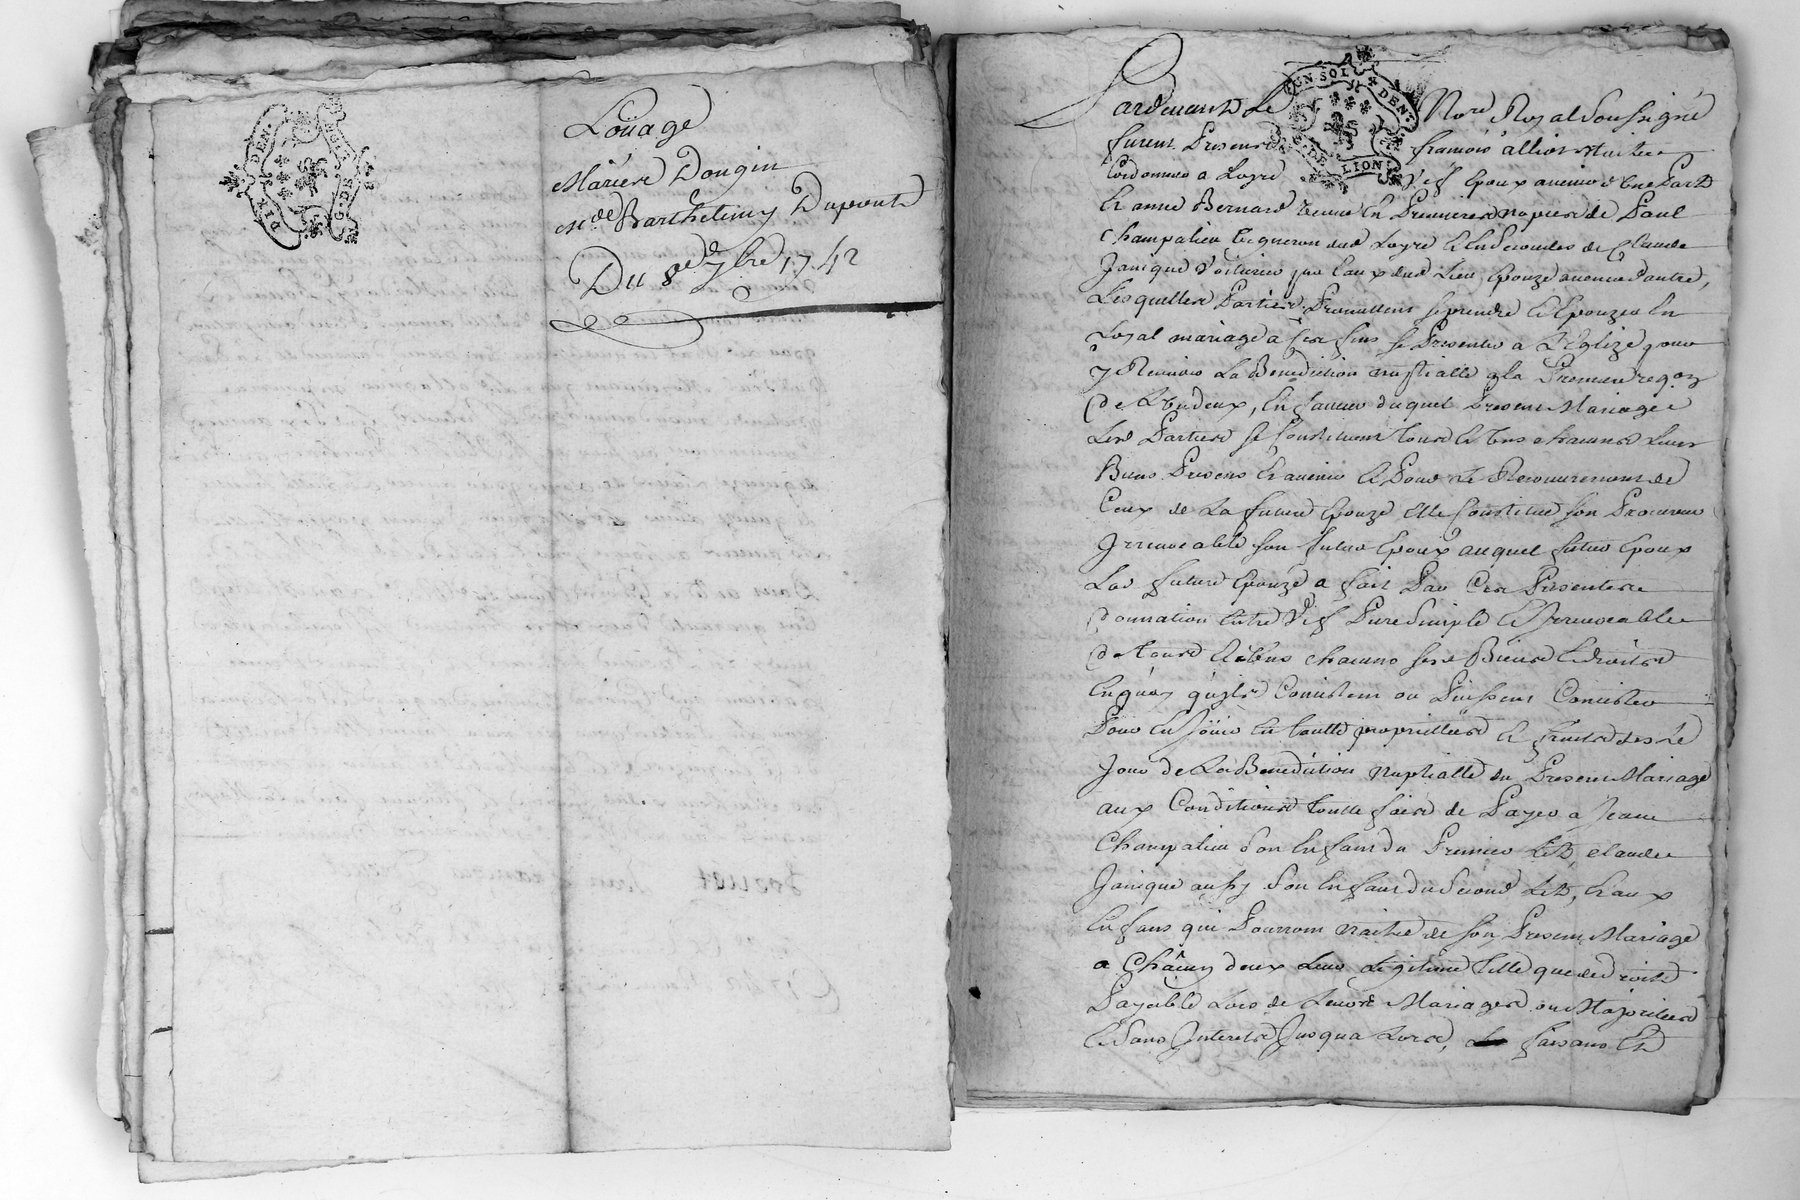 Loüage
Dongin
Barthelemy Dupont
Du 8e 7bre 1742
UN SOL
DEN.
G. DE LION
Pardevant Le Nore Royal Soussigné
furent Presens françois alliot Maitre
Cordonnier a Loyre d'e Part
Et anne Bernard veuve En Premieres nopces de Paul
Champalieu vigneron dud Loyre Et En Secondes de Claude
Janique Voiturier par Eaux dud Lieu Epouze avenire d'autre,
Lesquelles Parties Promettent se prendre Et Epouzer En
Loyal mariage a ses fins se Presenter a L'Eglize pour
y Recevoir La Benediction nuptialle a la Premiere reqon
de L'un deux, En faveur duquel Present Mariage
Les Parties se Constituent tous Et Uns chacuns Leurs
Biens Presens Et avenir Et Pour le Recouvrement de
Ceux de La future Epouze Elle Constitue son Procureur
Irrevocable son futur Epoux auquel futur Epoux
Lad future Epouze a fait Par Ces Presentes
donnation Entre Vifs Pure Simple Et Irrevocable
de tous Et Uns chacuns ses Biens Et droits
En quoy quils Consistent ou Puissent Consister
Pour En Jöuir En toutte proprietté Et fruits des Le
Jour de La Benediction Nuptialle du Present Mariage
aux Conditions touttefois de Payer a Jeanne
Champalieu son Enfant du Premier Lit, claude
Janique aussy Son Enfant du Second Lit, Et aux
Enfans qui Pourront naitre de son Present Mariage
a Châcun deux Leur Legitime telle que de droit
Payable Lors de Leurs Mariages ou Majorités
Et Sans Interets Jusqua Lors, faisant Et